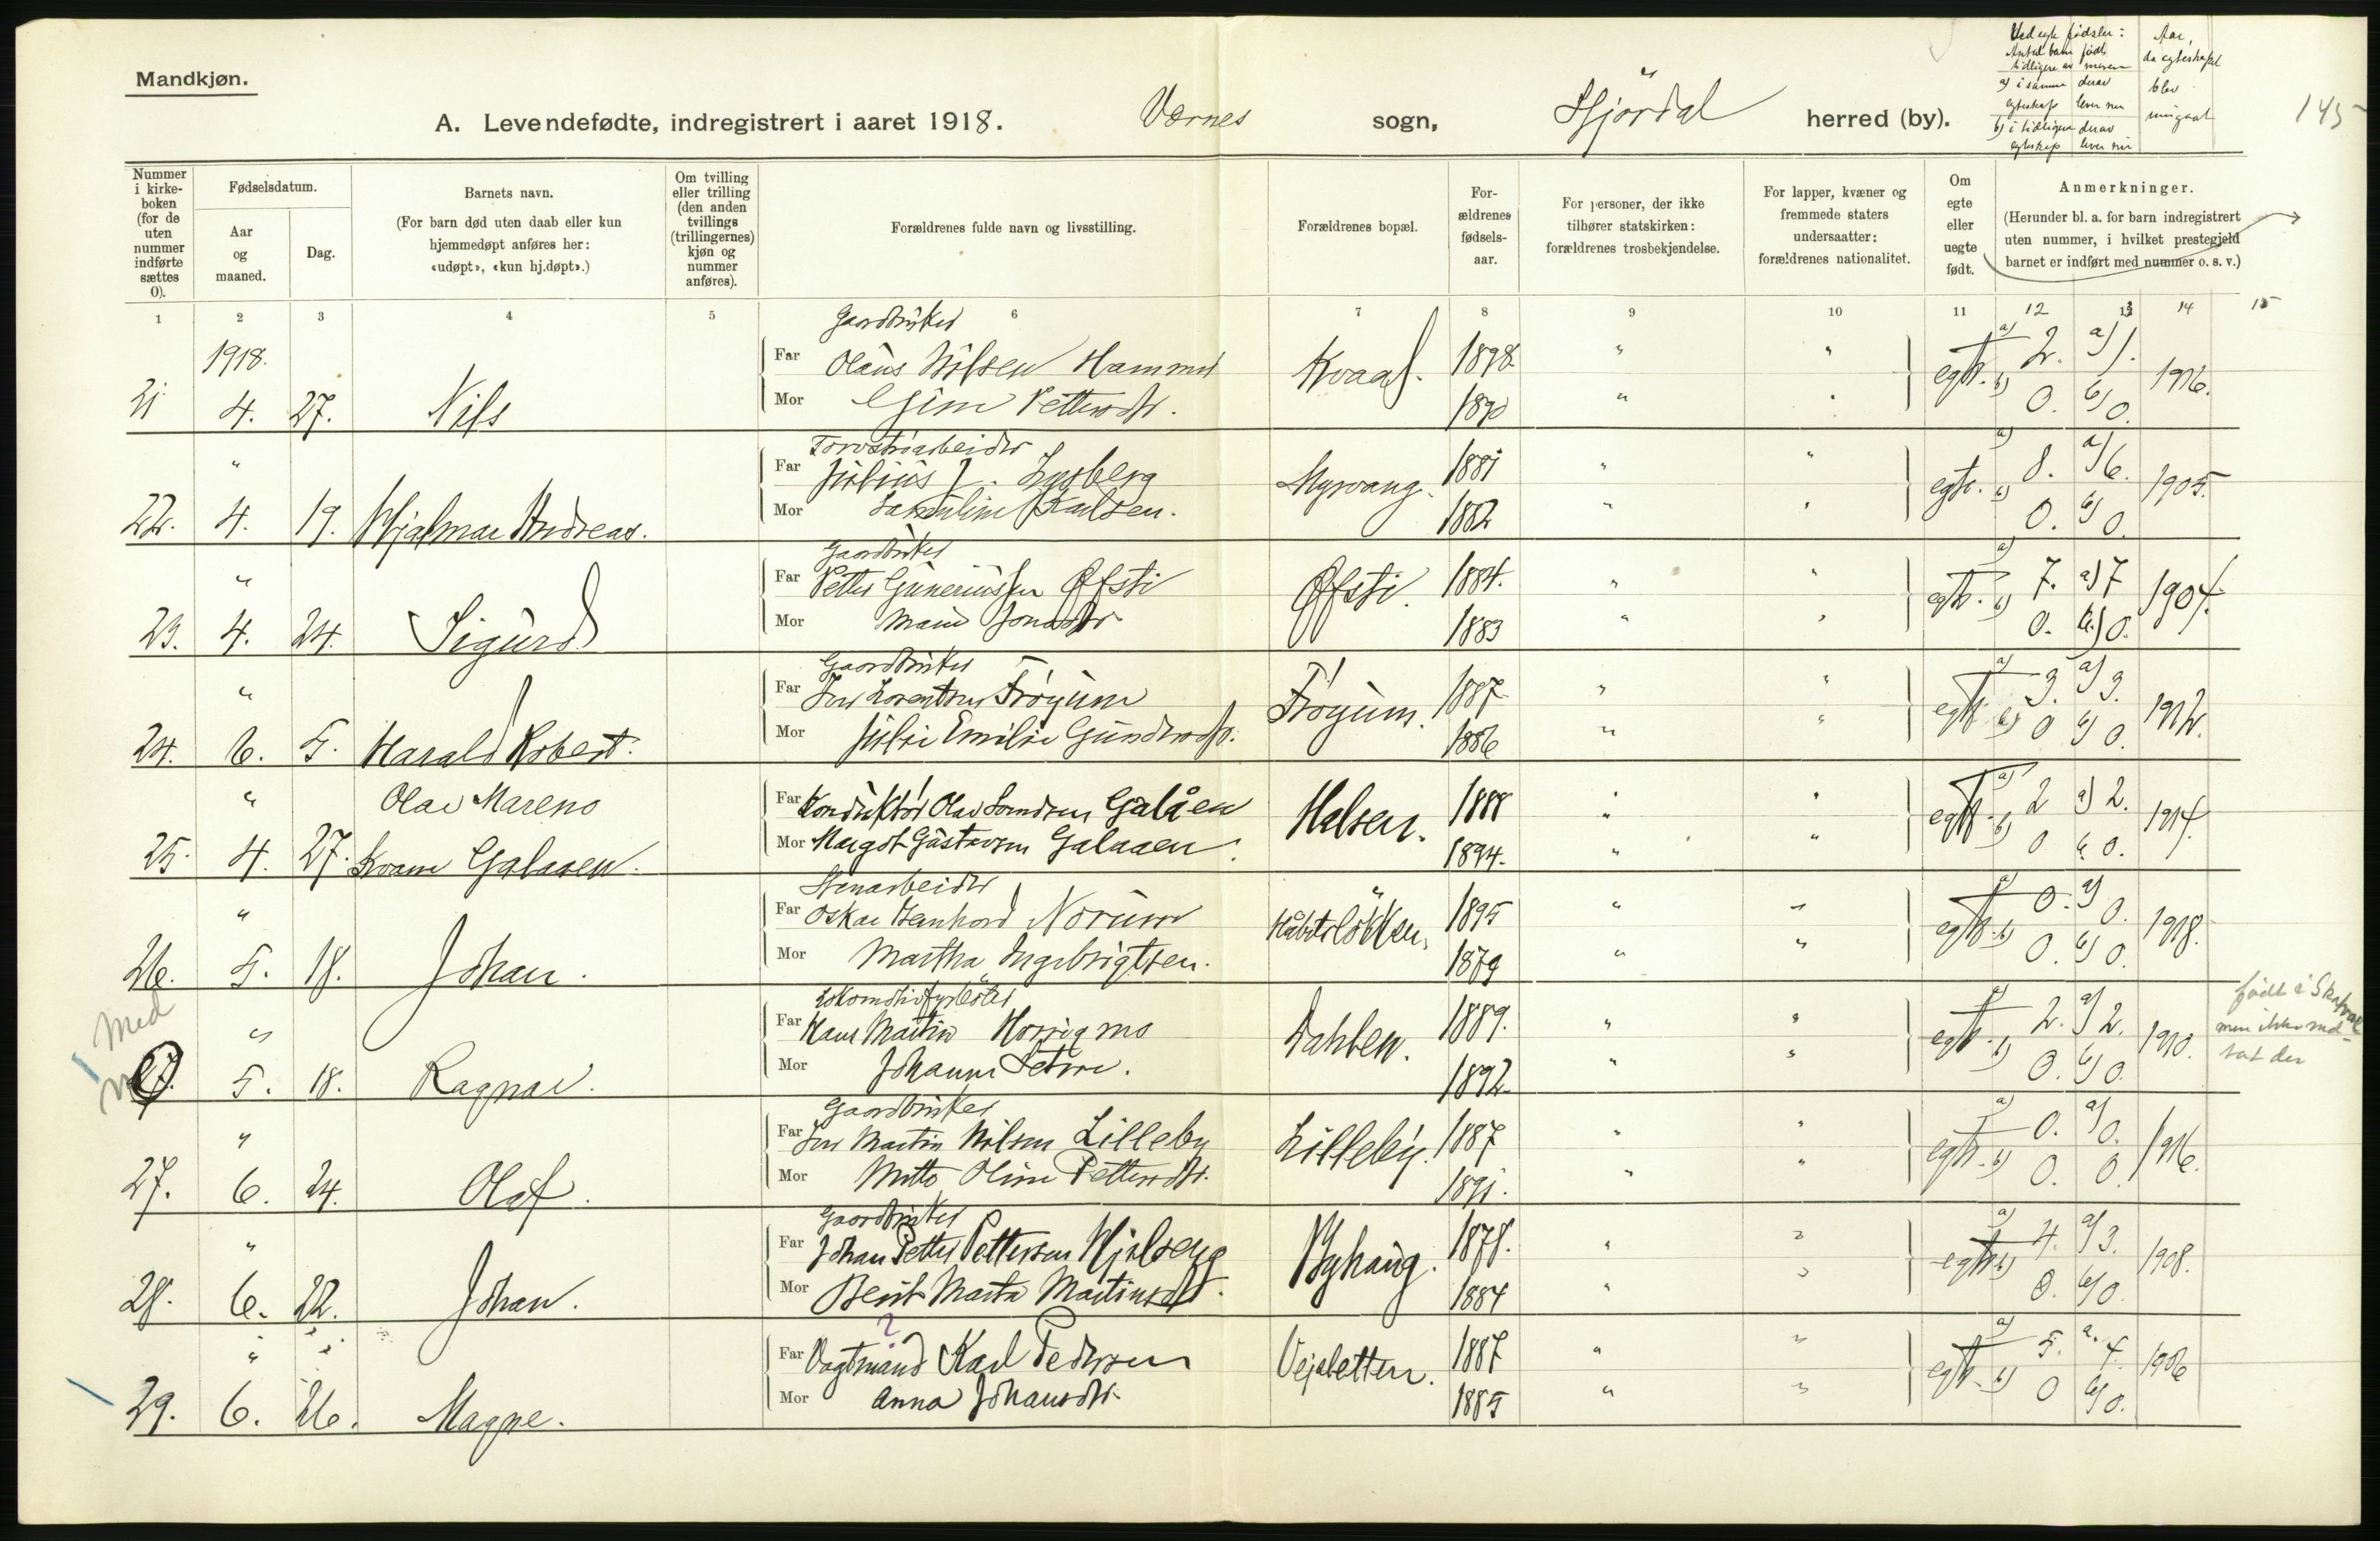 Mandkjøn.
A. Levendefødte, indregistrert i aaret 1918.
Værnes sogn,
Stjørdal herred (by).
Ved egte fødsler:
Antal barn født
tidligere av moren
a) i samme egteskap
derav lever nu
b) i tidligere egteskap
derav lever nu
Aar,
da egteskapet
blev
inngaat
145
Nummer i kirke-boken (for de uten nummer indførte sættes 0).
Fødselsdatum.
Aar og maaned.
Dag.
Barnets navn.
(For barn død uten daab eller kun hjemmedøpt anføres her: «udøpt», «kun hj.døpt».)
Om tvilling eller trilling (den anden tvillings (trillingernes) kjøn og nummer anføres).
Forældrenes fulde navn og livsstilling.
Forældrenes bopæl.
For-ældrenes fødsels-aar.
For personer, der ikke tilhører statskirken: forældrenes trosbekjendelse.
For lapper, kvæner og fremmede staters undersaatter: forældrenes nationalitet.
Om egte eller uegte født.
Anmerkninger.
(Herunder bl. a. for barn indregistrert uten nummer, i hvilket prestegjeld barnet er indført med nummer o. s. v.)
1 2 3 4 5 6 7 8 9 10 11 12 13 14 15
1918.
Gaardbruker
Far Olaus Nilsen Hammer Kvaal. 1898 " " egte. a) 2. a) 1. 1916.
21 4. 27. Nils
Mor Petersdtr. 1890 " " b) 0. b) 0.
Far Julius J. Myrvang. 1881 " " egte. a) 8. a) 6. 1905.
22. 4. 19. Hjalmar Andreas.
Mor Karlsen. 1882 " " b) 0. b) 0.
Gaardbruker
Far Petter Gunneriussen Øfsti Øfsti. 1884. " " egte. a) 7. a) 7 1904.
23. 4. 24. Sigurd
Mor Marie Jonasdtr 1883 " " b) 0. b) 0.
Gaardbruker
Far Lorentsen Frøyum Frøyum. 1887 " " egte a) 3. a) 3. 1912.
24. 6. 5. Harald Robert.
Mor Julie Emilie Gundersdtr. 1886 " " b) 0 b) 0.
" Olav Mareno
Far Konduktør Olav Galåen Halsen. 1888 " " egte. a) 2 a) 2. 1914.
25. 4. 27. Kvam Galaaen.
Mor Margot Gustavsen Galaaen. 1894. " " b) 0 b. 0.
Stenarbeider
Far Oskar Bernhard Norum 1895 " " egte. a) 0. a) 0. 1918.
26. 5. 18. Johan.
Mor Martha Ingebrigtsen. 1879 " " b) 0. b) 0.
Lokomotivfyrbøter
Far Hans Martin Dahlen. 1889. " " egte. a) 2. a) 2. 1910.
født i Skatval
men ikke med-
tat der
Med
27. 5. 18. Ragnar.
Mor Johanne 1892 " " b) 0. b) 0.
Gaardbruker
Far Martin Nilsen Lilleby Lilleby. 1887 " " egte. a) 0. a) 0. 1916.
27. 6. 24. Olaf.
Mor Oline Pettersdtr. 1891. " " b) 0. 0.
Gaardbruker
Far Johan Petter Pettersen Hjelseng Byhaug. 1878. " " egte a) 4. a) 3. 1908.
28. 6. 22. Johan.
Mor Berit Marta Martinsdtr. 1884 " " b) 0. b) 0.
?
Far Vogtmand Karl Pedersen Vejsletten. 1887 " " egte. a) 5. a. 4. 1906
29. 6. 26. Magne.
Mor Anna Johansdtr. 1885 " " b) 0 b) 0.